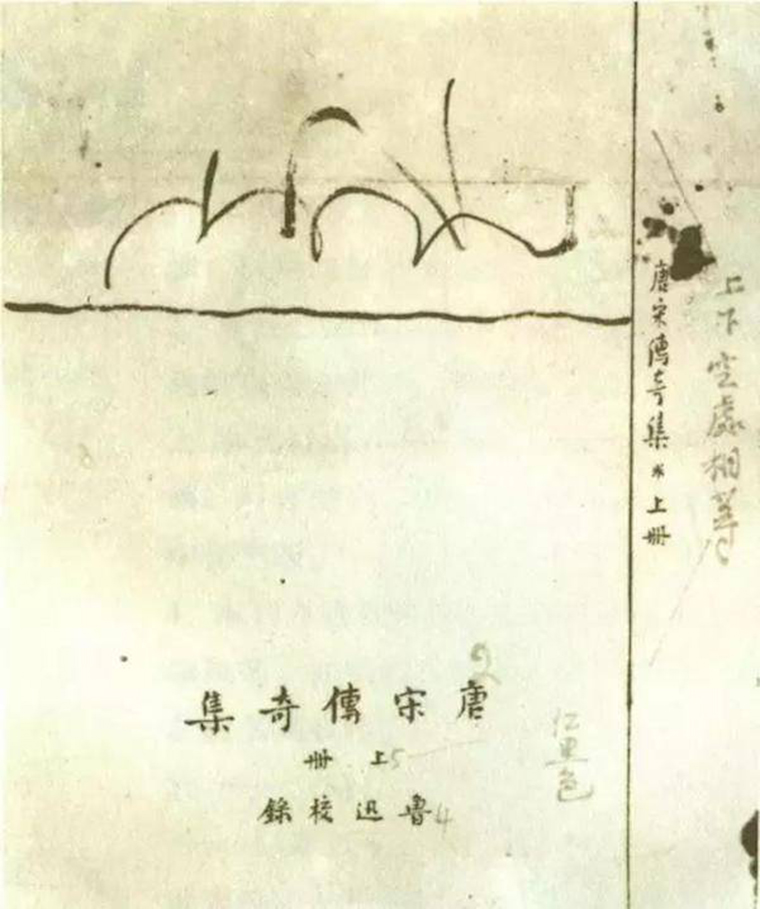 唐宋傳奇集
上冊
魯迅校錄
唐宋傳奇集 上冊
上下空處相等
2
5
4